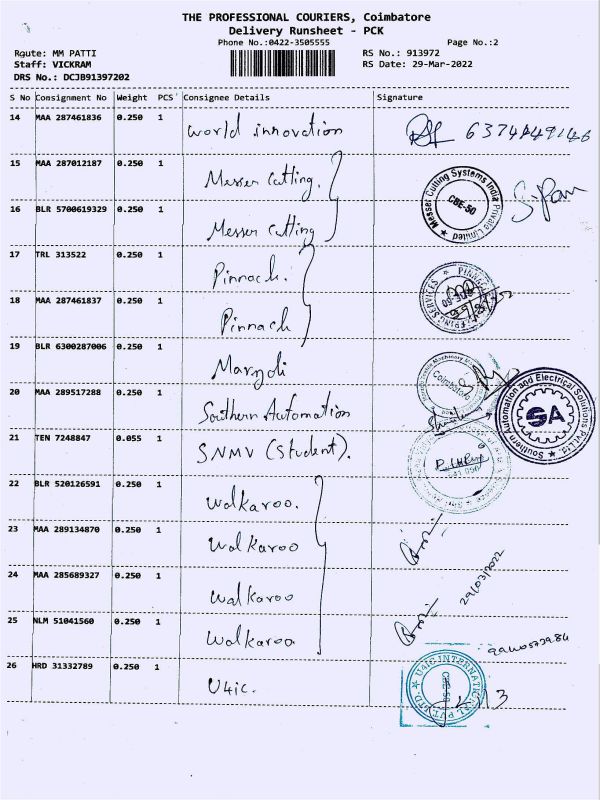 THE PROFESSIONAL COURIERS, Coimbatore
Delivery Runsheet - PCK
Phone No.:0422-3505555
Page No.:2
Route: MM PATTI
RS No.: 913972
Staff: VICKRAM
RS Date: 29-Mar-2022
DRS No.: DCJB91397202
S No Consignment No Weight PCS Consignee Details Signature
14 MAA 287461836 0.250 1 World innovation
15 MAA 287012187 0.250 1 Messer Cutting.
Messer Cutting Systems India Private Limited CBE-50
16 BLR 5700619329 0.250 1 Messer Cutting
17 TRL 313522 0.250 1 Pinnach.
18 MAA 287461837 0.250 1 Pinnach
19 BLR 6300287006 0.250 1
Coimbatore
20 MAA 289517288 0.250 1 Southern Automation
Southern Automation and Electrical Solutions Pvt. Ltd. SA
21 TEN 7248847 0.055 1 SNMV (Student).
22 BLR 520126591 0.250 1 Walkaroo.
23 MAA 289134870 0.250 1 Walkaroo
24 MAA 285689327 0.250 1 Walkaroo
29/03/2022
25 NLM 51041560 0.250 1 Walkaroo
26 HRD 31332789 0.250 1 U4ic.
U4IC INTERNATIONAL PVT LTD.